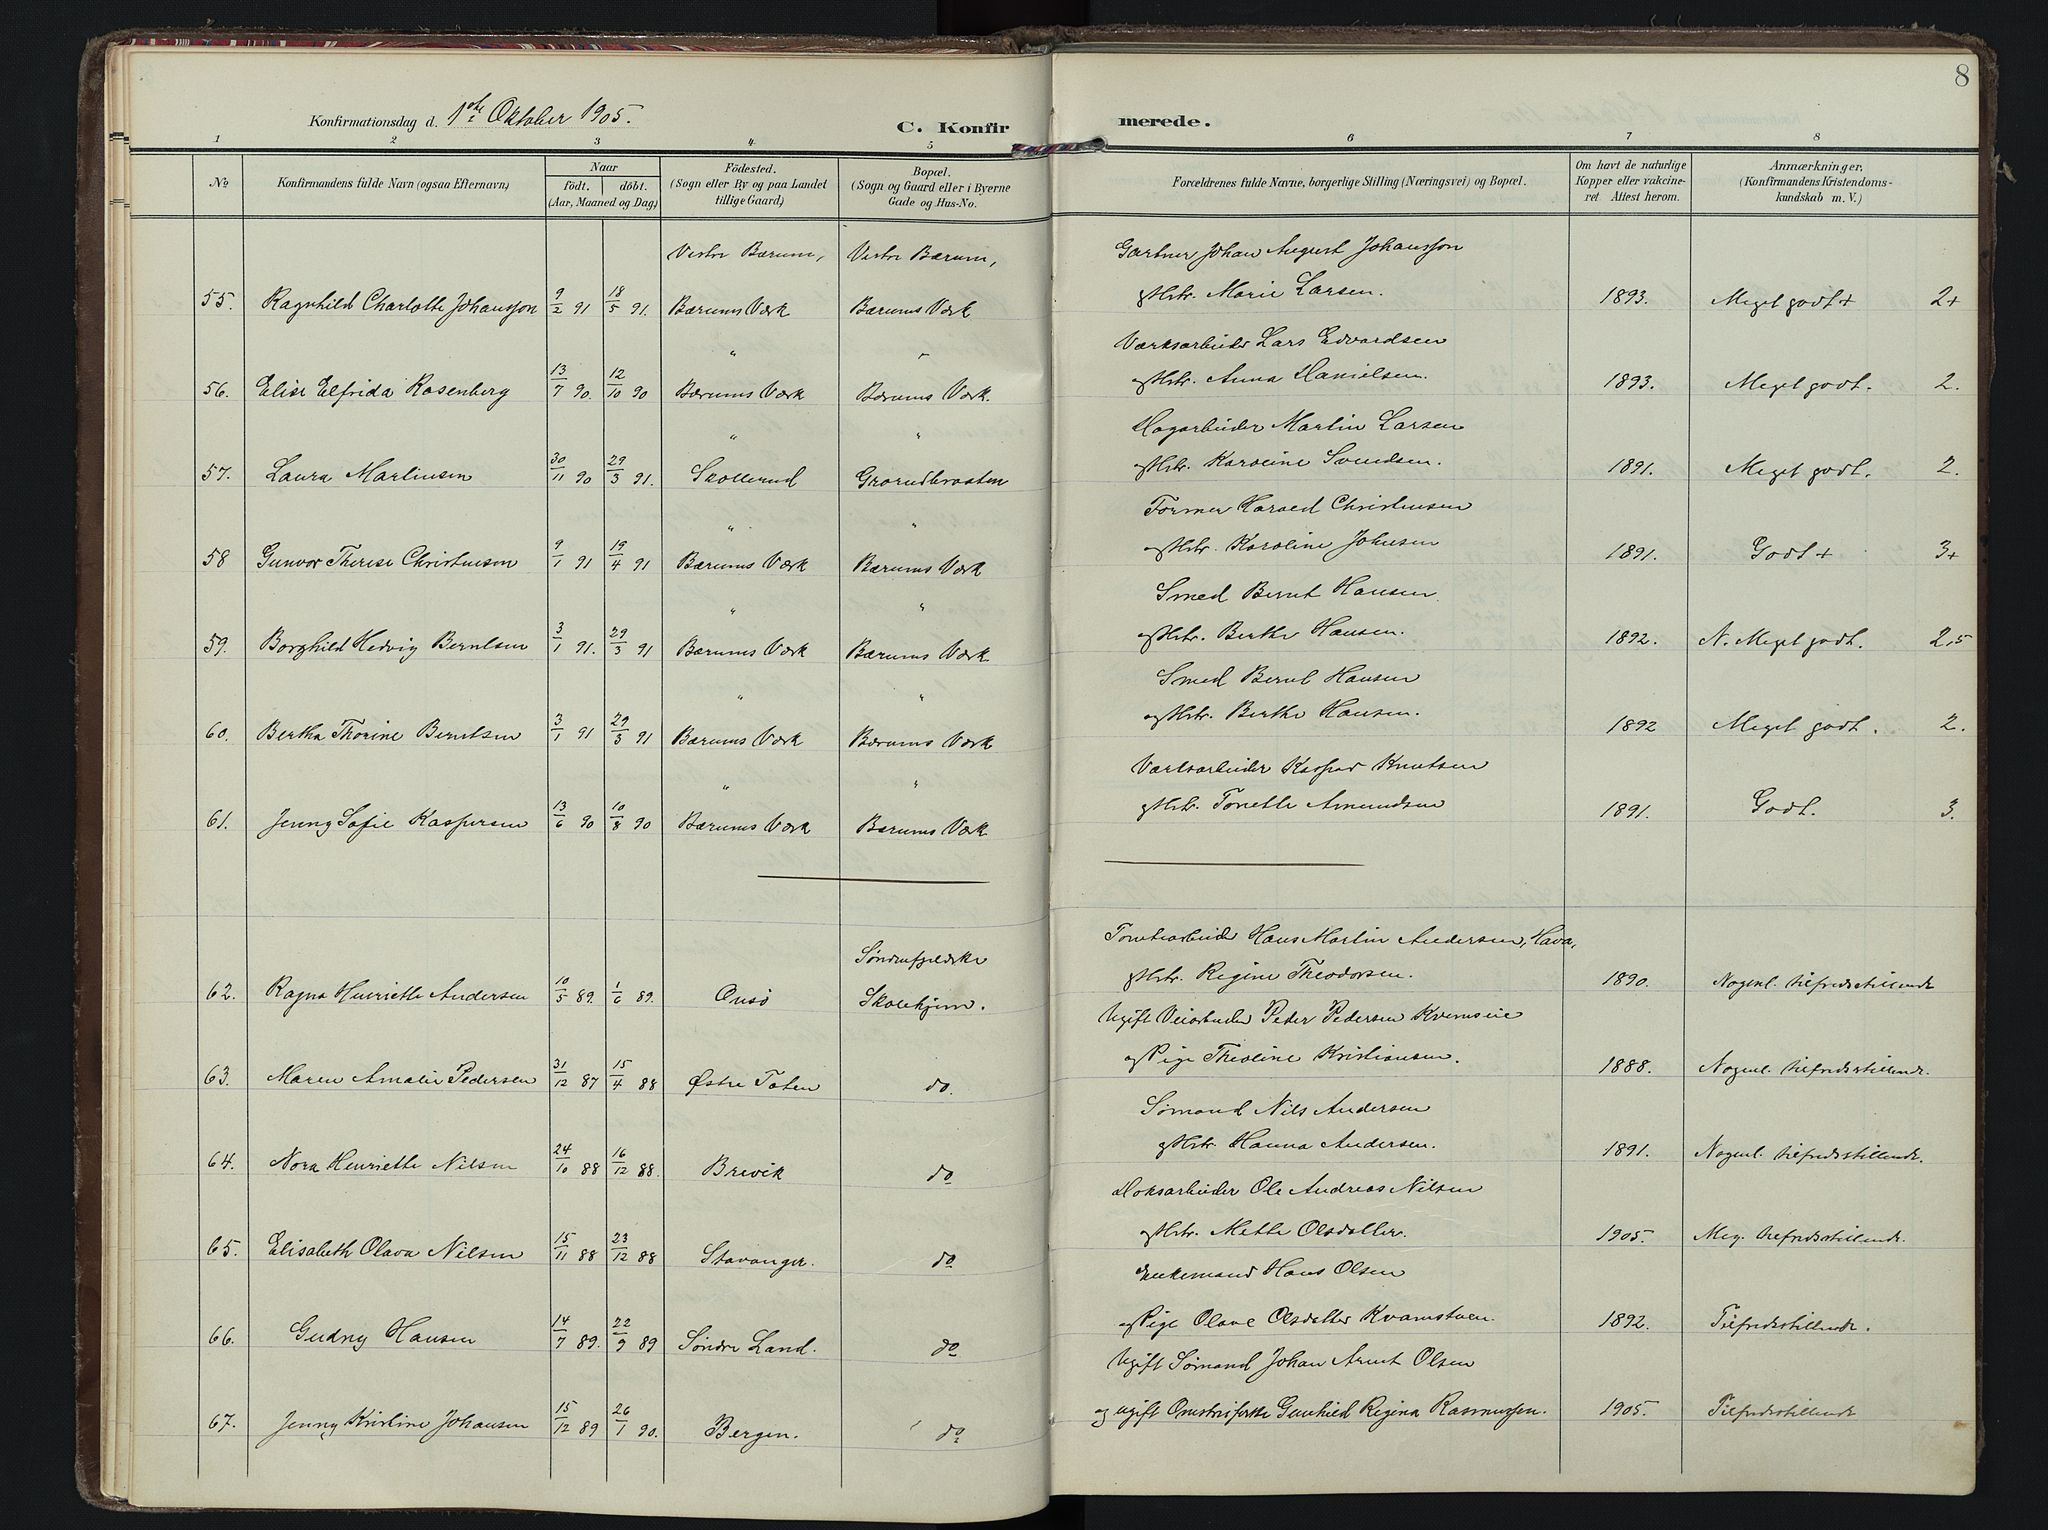 8
Konfirmationsdag d. 1ste Oktober 1905.
C. Konfirmerede.
1 2 3 4 5 6 7 8
No
Konfirmandens fulde Navn (ogsaa Efternavn)
Naar
født. døbt.
(Aar, Maaned og Dag)
Födested.
(Sogn eller By og paa Landet
tillige Gaard)
Bopæl.
(Sogn og Gaard eller i Byerne
Gade og Hus-No.
Forældrenes fulde Navne, borgerlige Stilling (Næringsvei) og Bopæl.
Om havt de naturlige
Kopper eller vakcine-
ret Attest herom.
Anmærkninger,
(Konfirmandens Kristendoms-
kundskab m. V.)
Vestre Bærum, Vestre Bærum, Gartner Johan August Johansson
55. Ragnhild Charlotte Johansson 9/2 91 18/5 91. Bærums Værk Bærums Værk og Hstr. Marie Larsen. 1893. Meget godt + 2+
" " Værksarbeider Lars Edvardsen
56. Elise Elfrida Rosenberg 13/7 90. 12/10 90 Bærums Værk Bærums Værk. og Hstr. Anna Danielsen. 1893. Meget godt. 2.
" " Dagarbeider Martin Larsen
57. Laura Martinsen 30/11 90 29/3 91. Skollerud Grorudbraaten og Hstr. Karoline Svendsen. 1891. Meget godt. 2.
" " Former Harald Christensen
58 Gunvor Therese Christensen 9/1 91 19/4 91 Bærums Værk Bærums Værk og Hstr. Karoline Johnsen 1891. Godt + 3+
" " Smed Bernt Hansen
59. Borghild Hedvig Berntsen 3/1 91. 29/3 91 Bærums Værk Bærums Værk og Hstr. Berthe Hansen. 1892. N. Meget godt. 2,5
" " Smed Bernt Hansen
60. Bertha Thorine Berntsen 3/1 91 29/3 91 Bærums Værk Bærums Værk og Hstr. Berthe Hansen. 1892 Meget godt. 2.
" " Værksarbeider Kaspar Knutsen
61. Jenny Sofie Kaspersen 13/6 90 10/8 90 Bærums Værk Bærums Værk og Hstr. Tonette Amundsen 1891. Godt. 3.
Søndenfjeldske Tomtearbeider Hans Martin Andersen,
62. Ragna Henriette Andersen 10/5 89. 1/6 89. Onsö Skolehjem. og Hstr. Regine Theodorsen. 1890. Nogenl. tilfredsstillende
Ugift Veiarbeider Peder Pedersen
63. Maren Amalie Pedersen 31/12 87 15/4 88 Østre Toten do. og Pige Theoline Kristiansen. 1888. Nogenl. tilfredsstillende.
Sømand Nils Andersen
64. Nora Henriette Nilsen 24/10 88 16/12 88. Brevik do og Hstr. Hanna Andersen. 1891. Nogenl. tilfredsstillende.
Doksarbeider Ole Andreas Nilsen
65. Elisabeth Olava Nilsen 15/11 88 23/12 88 Stavanger. do og Hstr. Mette Olsdatter. 1905. Meg. tilfredsstillende.
Enkemand Hans Olsen
66. Gudny Hansen 14/7 89. 22/9 89 Søndre Land. do og Pige Olave Olsdatter Kvamstuen. 1892. Tilfredsstillende.
Ugift Sømand Johan Arnt Olsen
67. Jenny Kristine Johansen 15/12 89 26/1 90. Bergen. do og ugift Gunhild Regina Rasmussen. 1905. Tilfredsstillende